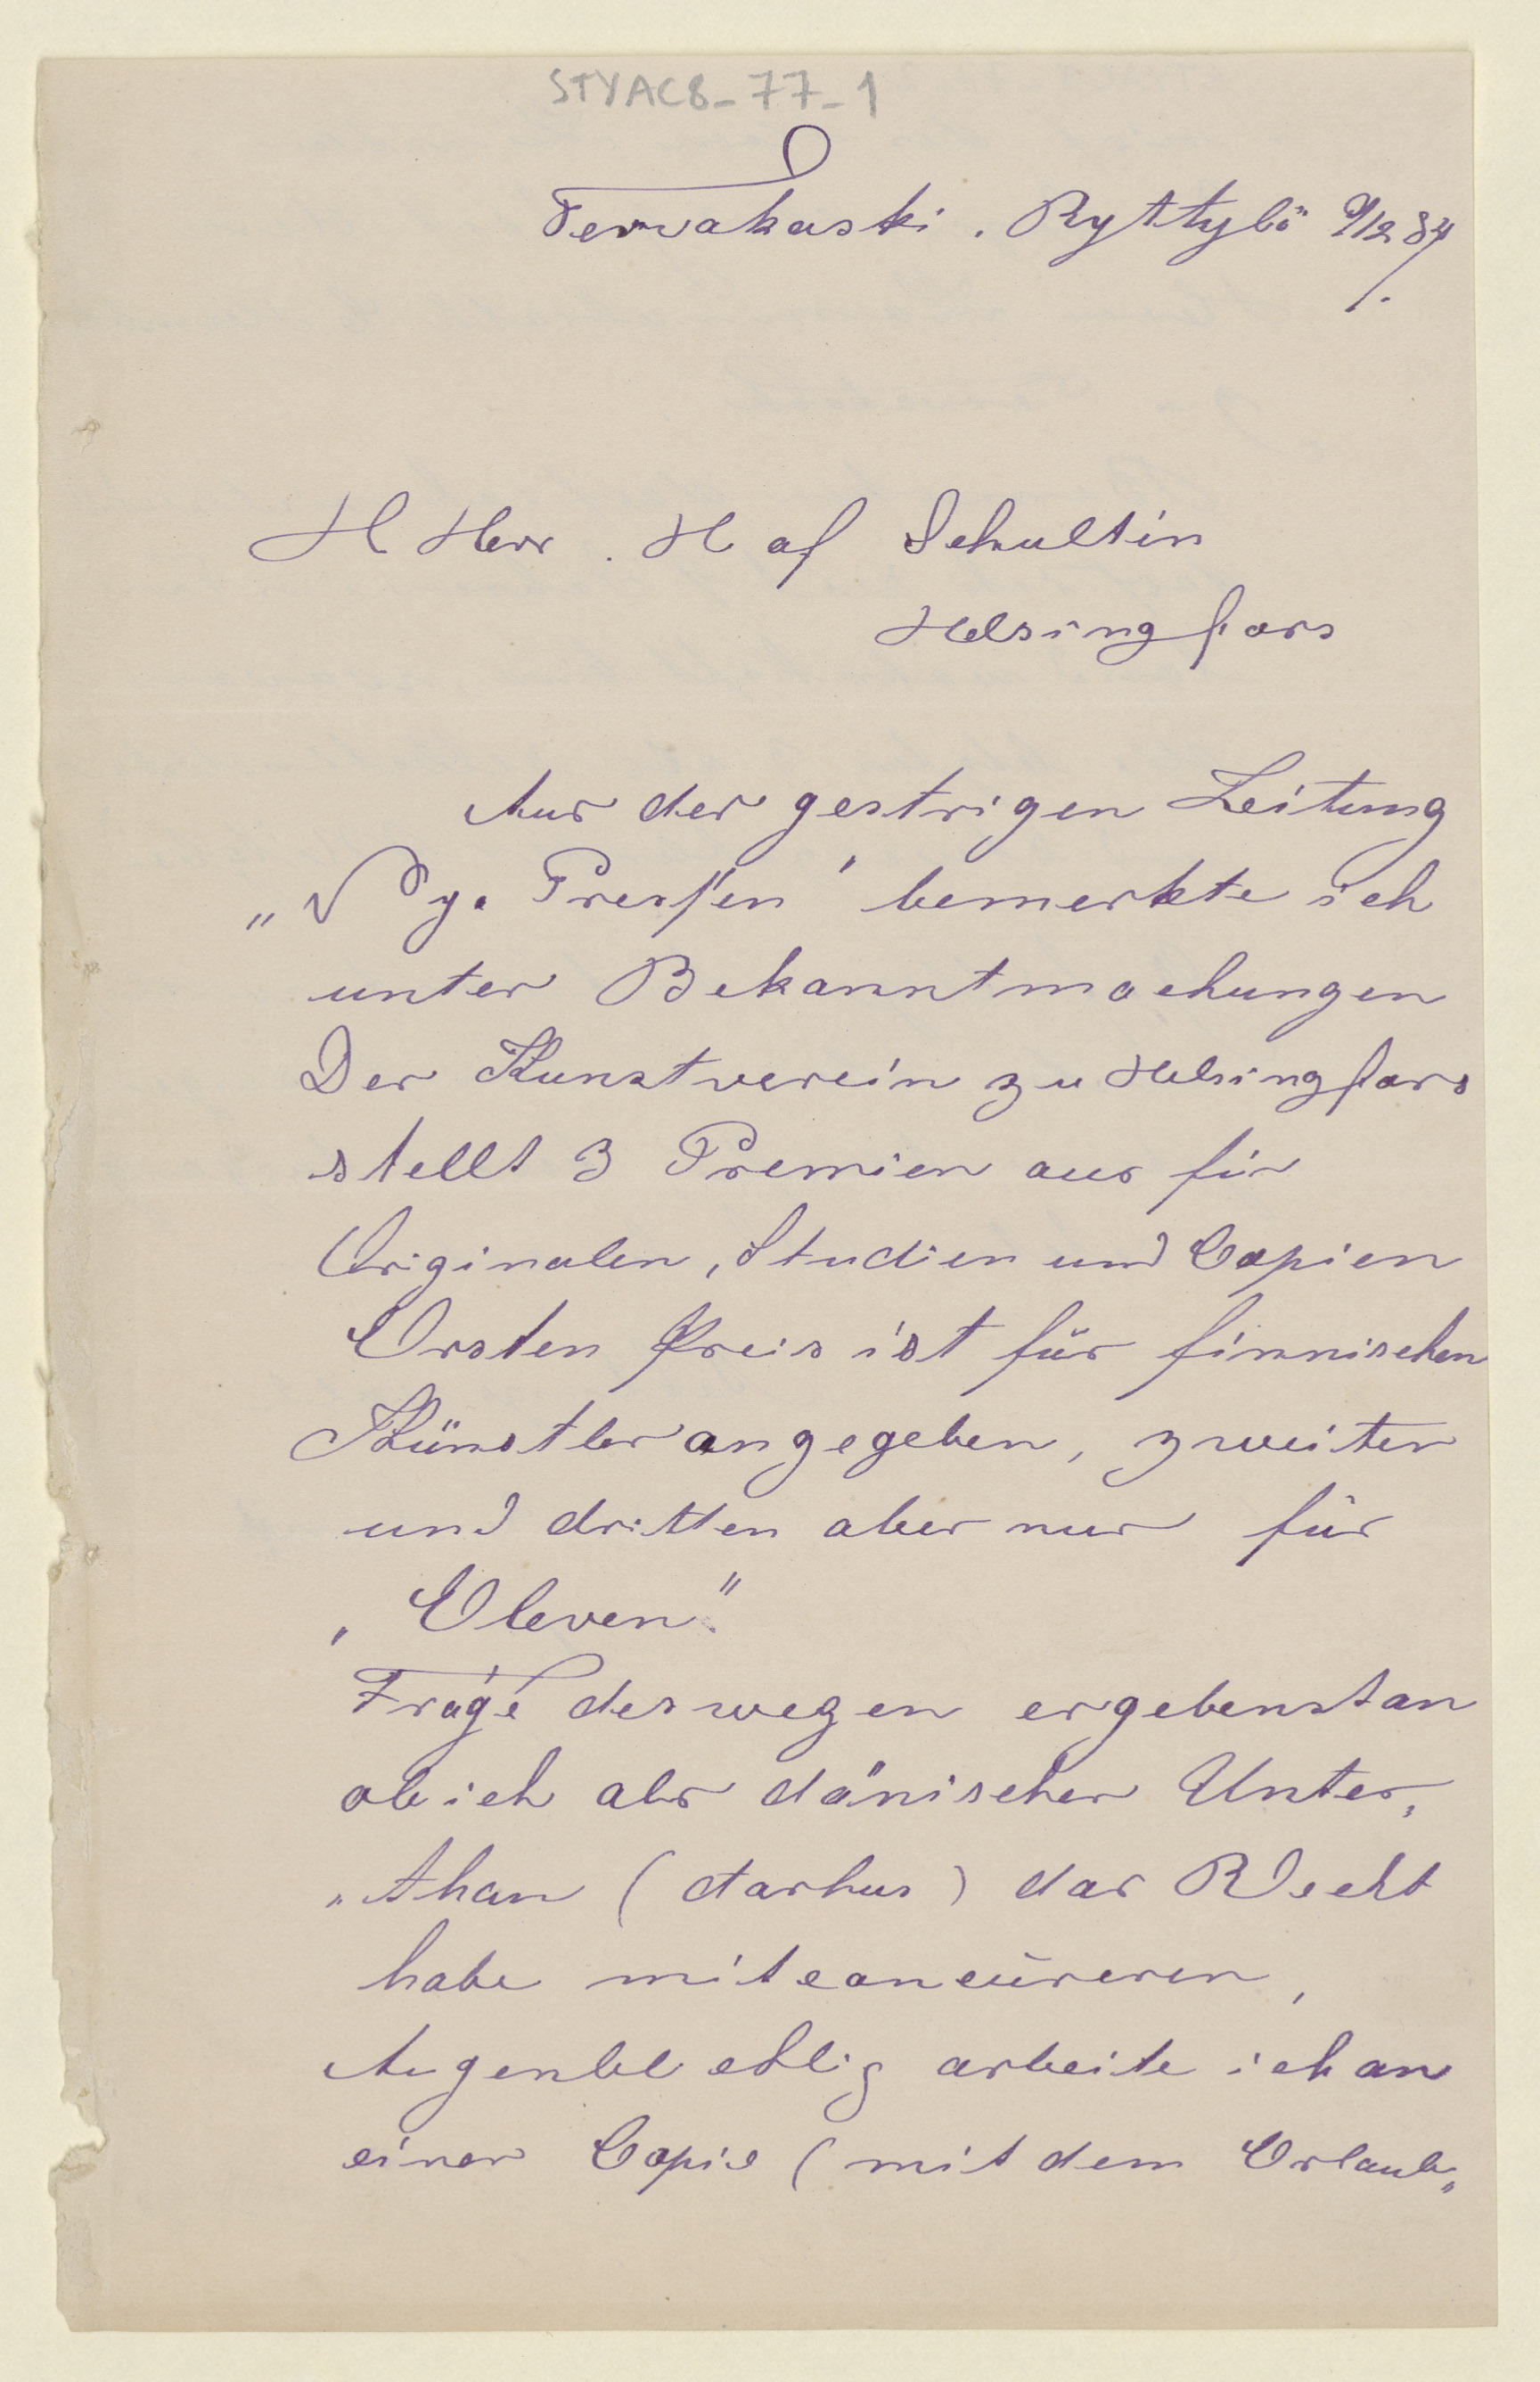 STYAC8_77_1
Terwakoski. Ryttylö 9/12 84
H Herr. H af Schultin
Helsingfors
Aus der gestrigen Zeitung
„Nya Pressen" bemerkte ich
unter Bekanntmachungen
Der Kunstverein zu Helsingfors
stellt 3 Premien aus für
Originalen, Studien und Copien
Ersten Preis ist für finnischen
Künstler angegeben, zweiten
und dritten aber nur für
„Eleven".
Frage deswegen ergebenst an
ob ich als dänischer Unter„
„than (Aarhus) das Recht
habe mitconcüreren,
Augenblecklig arbeite ich an
einer Copie (mit dem Erlaub„